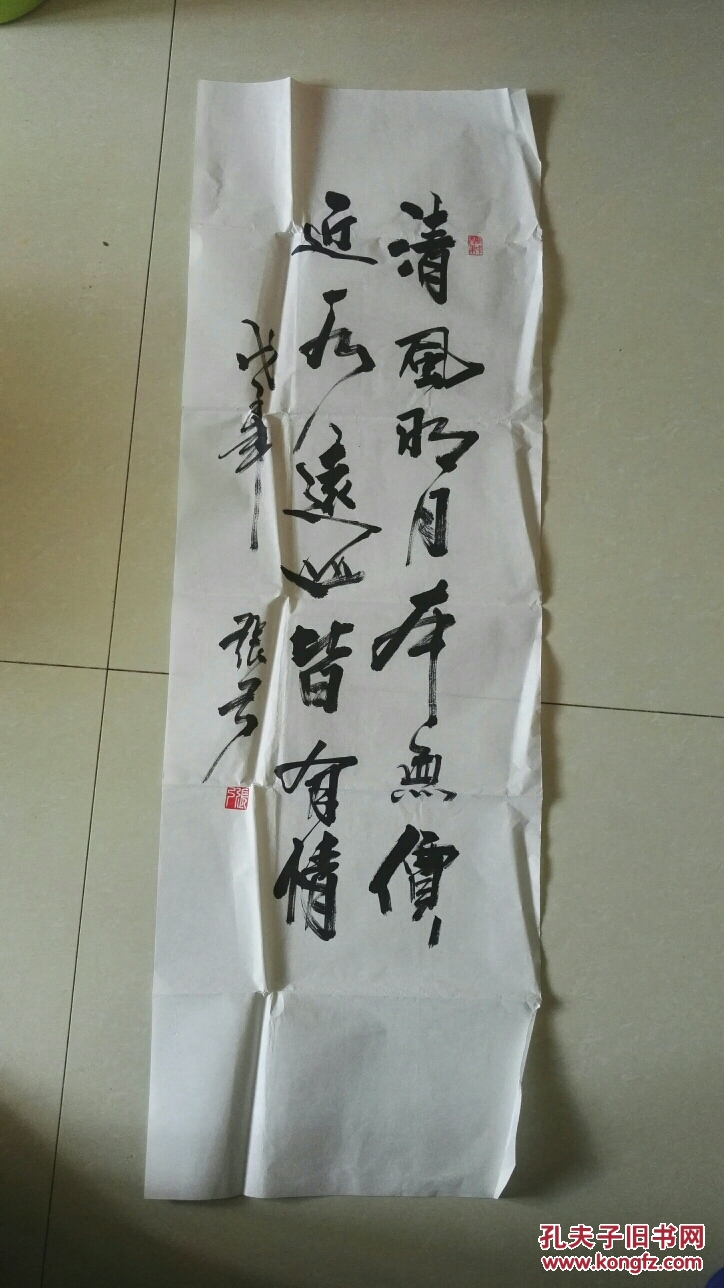 清風明月本無價
近水遠山皆有情
張
孔夫子旧书网
www.kongfz.com